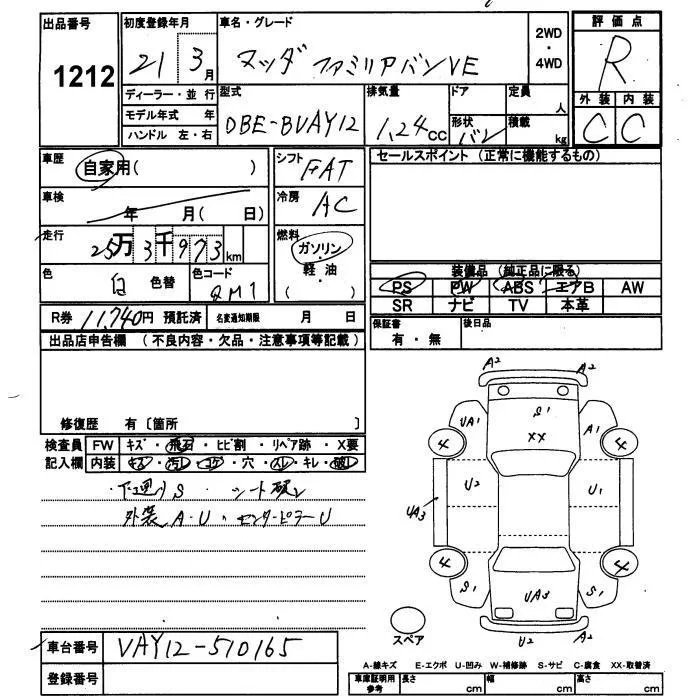 出品番号 初度登録年月 車名・グレード 2WD ・ 4WD 評価点
1212 21 3月 マツダ ファミリアバンVE R
ディーラー・並行 型式 排気量 ドア 定員 人 外装 内装
モデル年式 年 DBE-BVAY12 1.24cc 形状 バン 積載 kg C C
ハンドル 左・右
車歴 自家用( ) シフト FAT セールスポイント (正常に機能するもの)
車検 年 月( 日) 冷房 AC
走行 25万3千973km 燃料 ガソリン・軽油・( )
色 白 色替 色コード QM1 装備品 (純正品に限る)
PS PW ABS エアB AW
SR ナビ TV 本革
R券 11,740円 預託済 名変通知期限 月 日 保証書 有・無 後日品
出品店申告欄 (不良内容・欠品・注意事項等記載)
修復歴 有〔箇所 〕
検査員記入欄 FW キズ・飛石・ヒビ割・リペア跡・X要
内装 キズ・汚レ・コゲ・穴・スレ・キレ・破レ
下廻りS. シート破レ
外装A.U. センターピラーU
A2 A2
S1
XX
UA1 A1
4 4
U2 U1
UA3
4 4
S1 UA3 S1
U2 A2
スペア
車台番号 VAY12-510165
登録番号
A-線キズ E-エクボ U-凹み W-補修跡 S-サビ C-腐食 XX-取替済
車庫証明用参考 長さ cm 幅 cm 高さ cm